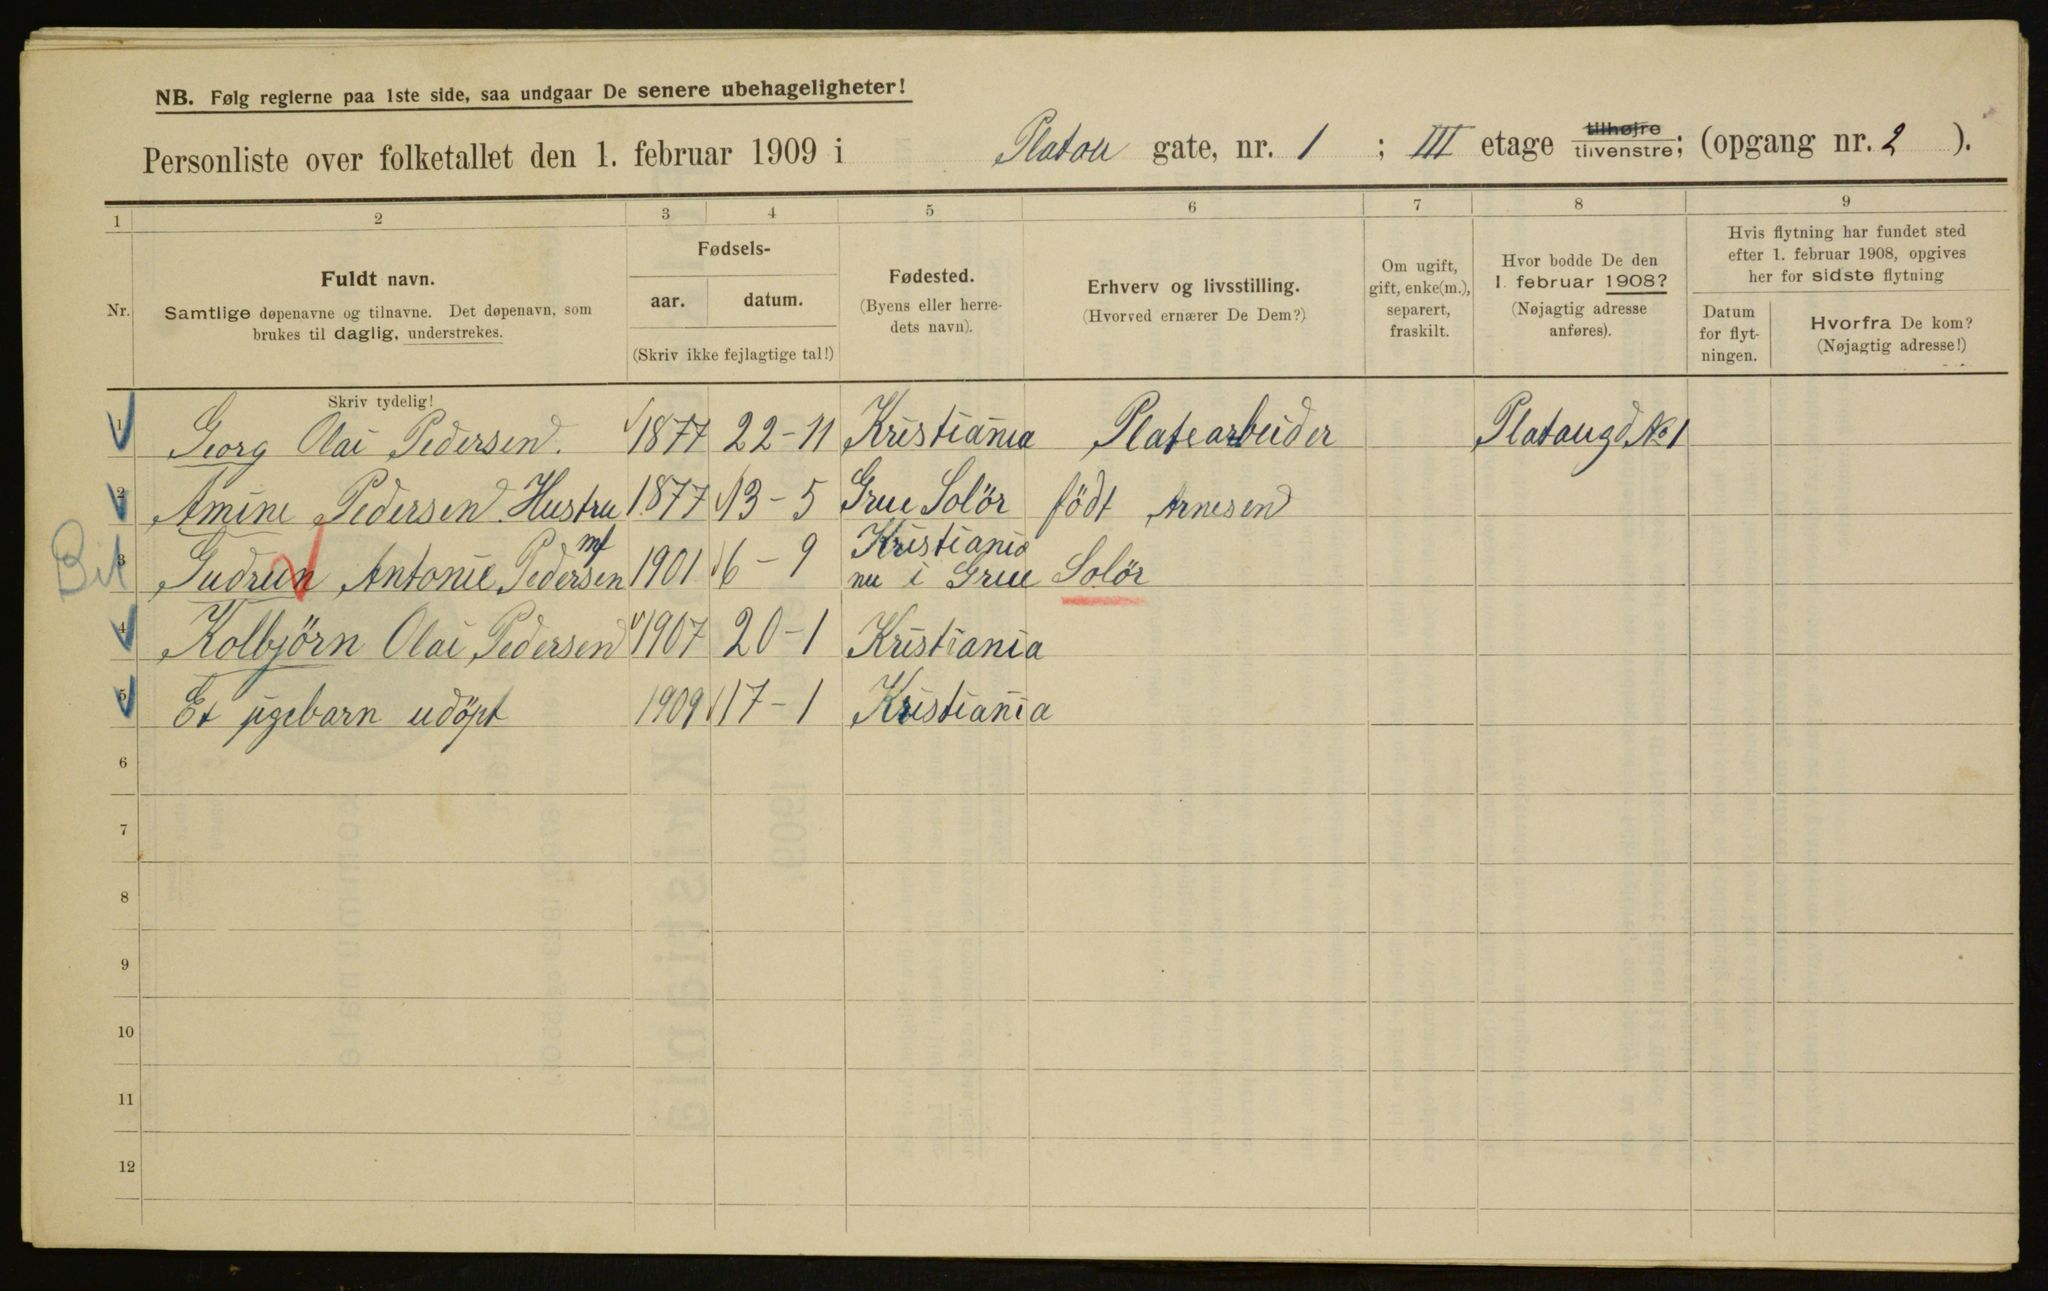 NB. Følg reglerne paa 1ste side, saa undgaar De senere ubehageligheter!
Personliste over folketallet den 1. februar 1909 i Platou gate, nr. 1 ; III etage tilhøjre tilvenstre; (opgang nr. 2 ).
1 2 3 4 5 6 7 8 9
Nr.
Fuldt navn.
Samtlige døpenavne og tilnavne. Det døpenavn, som
brukes til daglig, understrekes.
Fødsels-
aar. datum.
(Skriv ikke fejlagtige tal!)
Fødested.
(Byens eller herre-
dets navn).
Erhverv og livsstilling.
(Hvorved ernærer De Dem?)
Om ugift,
gift, enke(m.),
separert,
fraskilt.
Hvor bodde De den
1. februar 1908?
(Nøjagtig adresse
anføres).
Hvis flytning har fundet sted
efter 1. februar 1908, opgives
her for sidste flytning
Datum
for flyt-
ningen.
Hvorfra De kom?
(Nøjagtig adresse!)
Skriv tydelig!
1 Georg Olai Pedersen. 1877 22-11 Kristiania Platearbeider Plataugd No 1
2 Amine Pedersen Hustru 1877 13-5 Grue Solör födt Arnesen
3 Gudrun Antonie Pedersen mf 1901 6-9 Kristiania
nu i Grue Solör
4 Kolbjörn Olai Pedersen 1907 20-1 Kristiania
5 Et pgebarn udöpt 1909 17-1 Kristiania
6
7
8
9
10
11
12